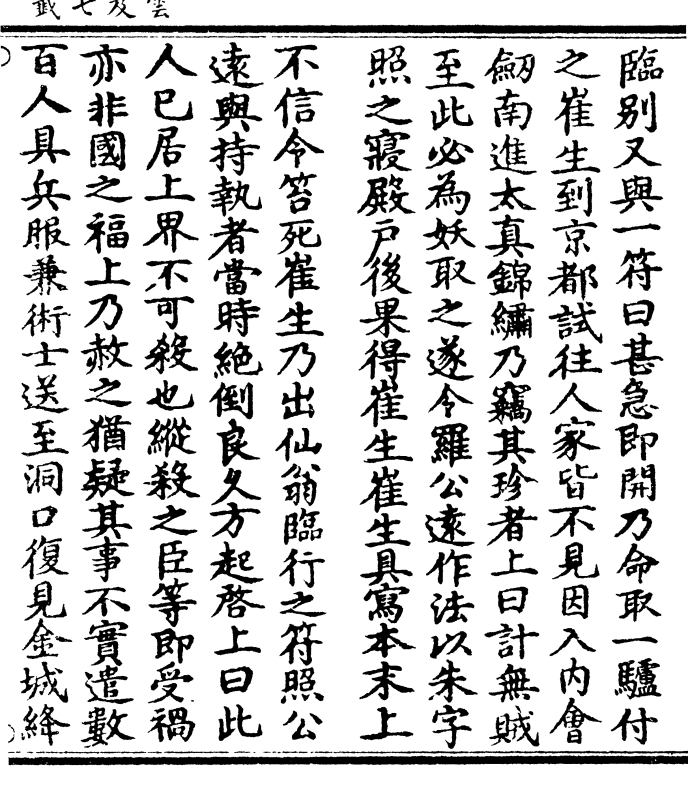 雲笈七籤
臨别又與一符曰甚急即開乃命取一驢付
之崔生到京都試往人家皆不見因入内會
劒南進太真錦繡乃竊其珍者上曰計無賊
至此必為妖取之遂令羅公逺作法以朱字
照之寢殿戸後果得崔生崔生具寫本末上
不信令笞死崔生乃出仙翁臨行之符照公
逺與持執者當時絶倒良久方起啓上曰此
人已居上界不可殺也縱殺之臣等即受禍
亦非國之福上乃赦之猶疑其事不實遣數
百人具兵服兼術士送至洞口復見金城絳